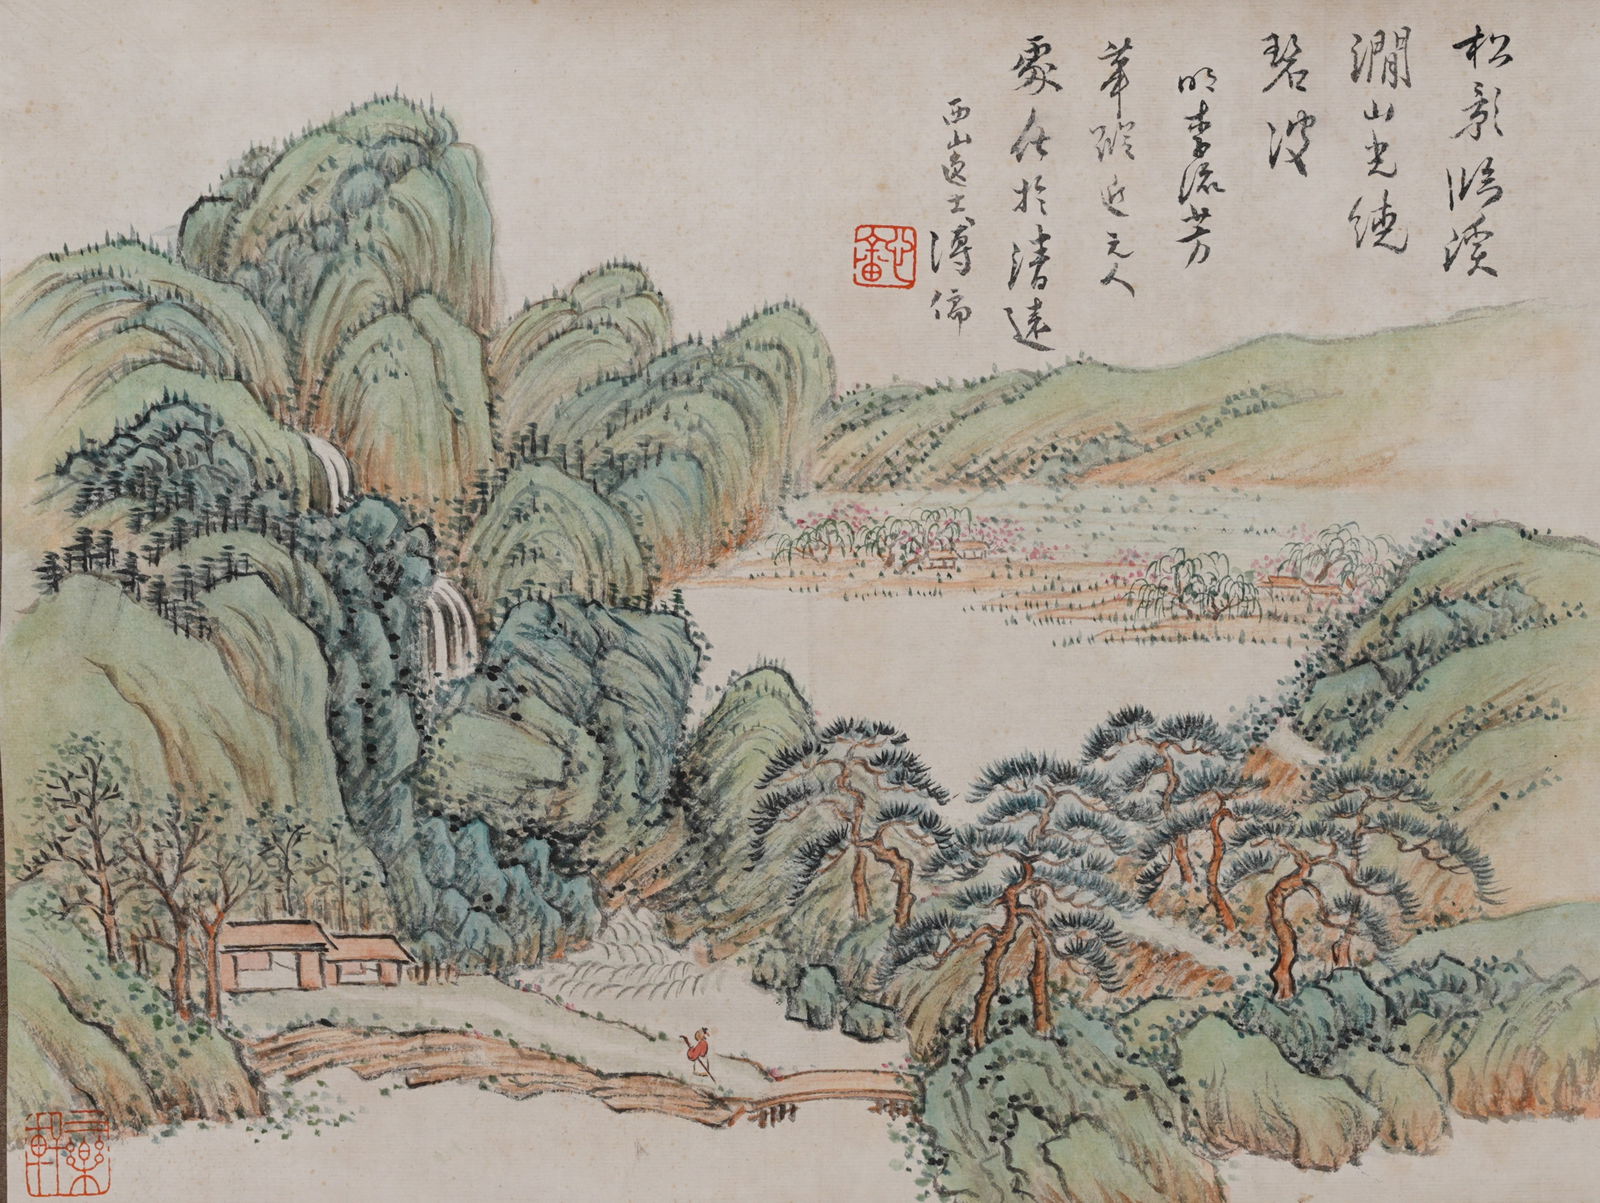 松影臨溪
澗山光繞
碧波
明李流芳
筆蹤近元人
處在於清遠
西山逸士溥儒
心畬
三樂軒